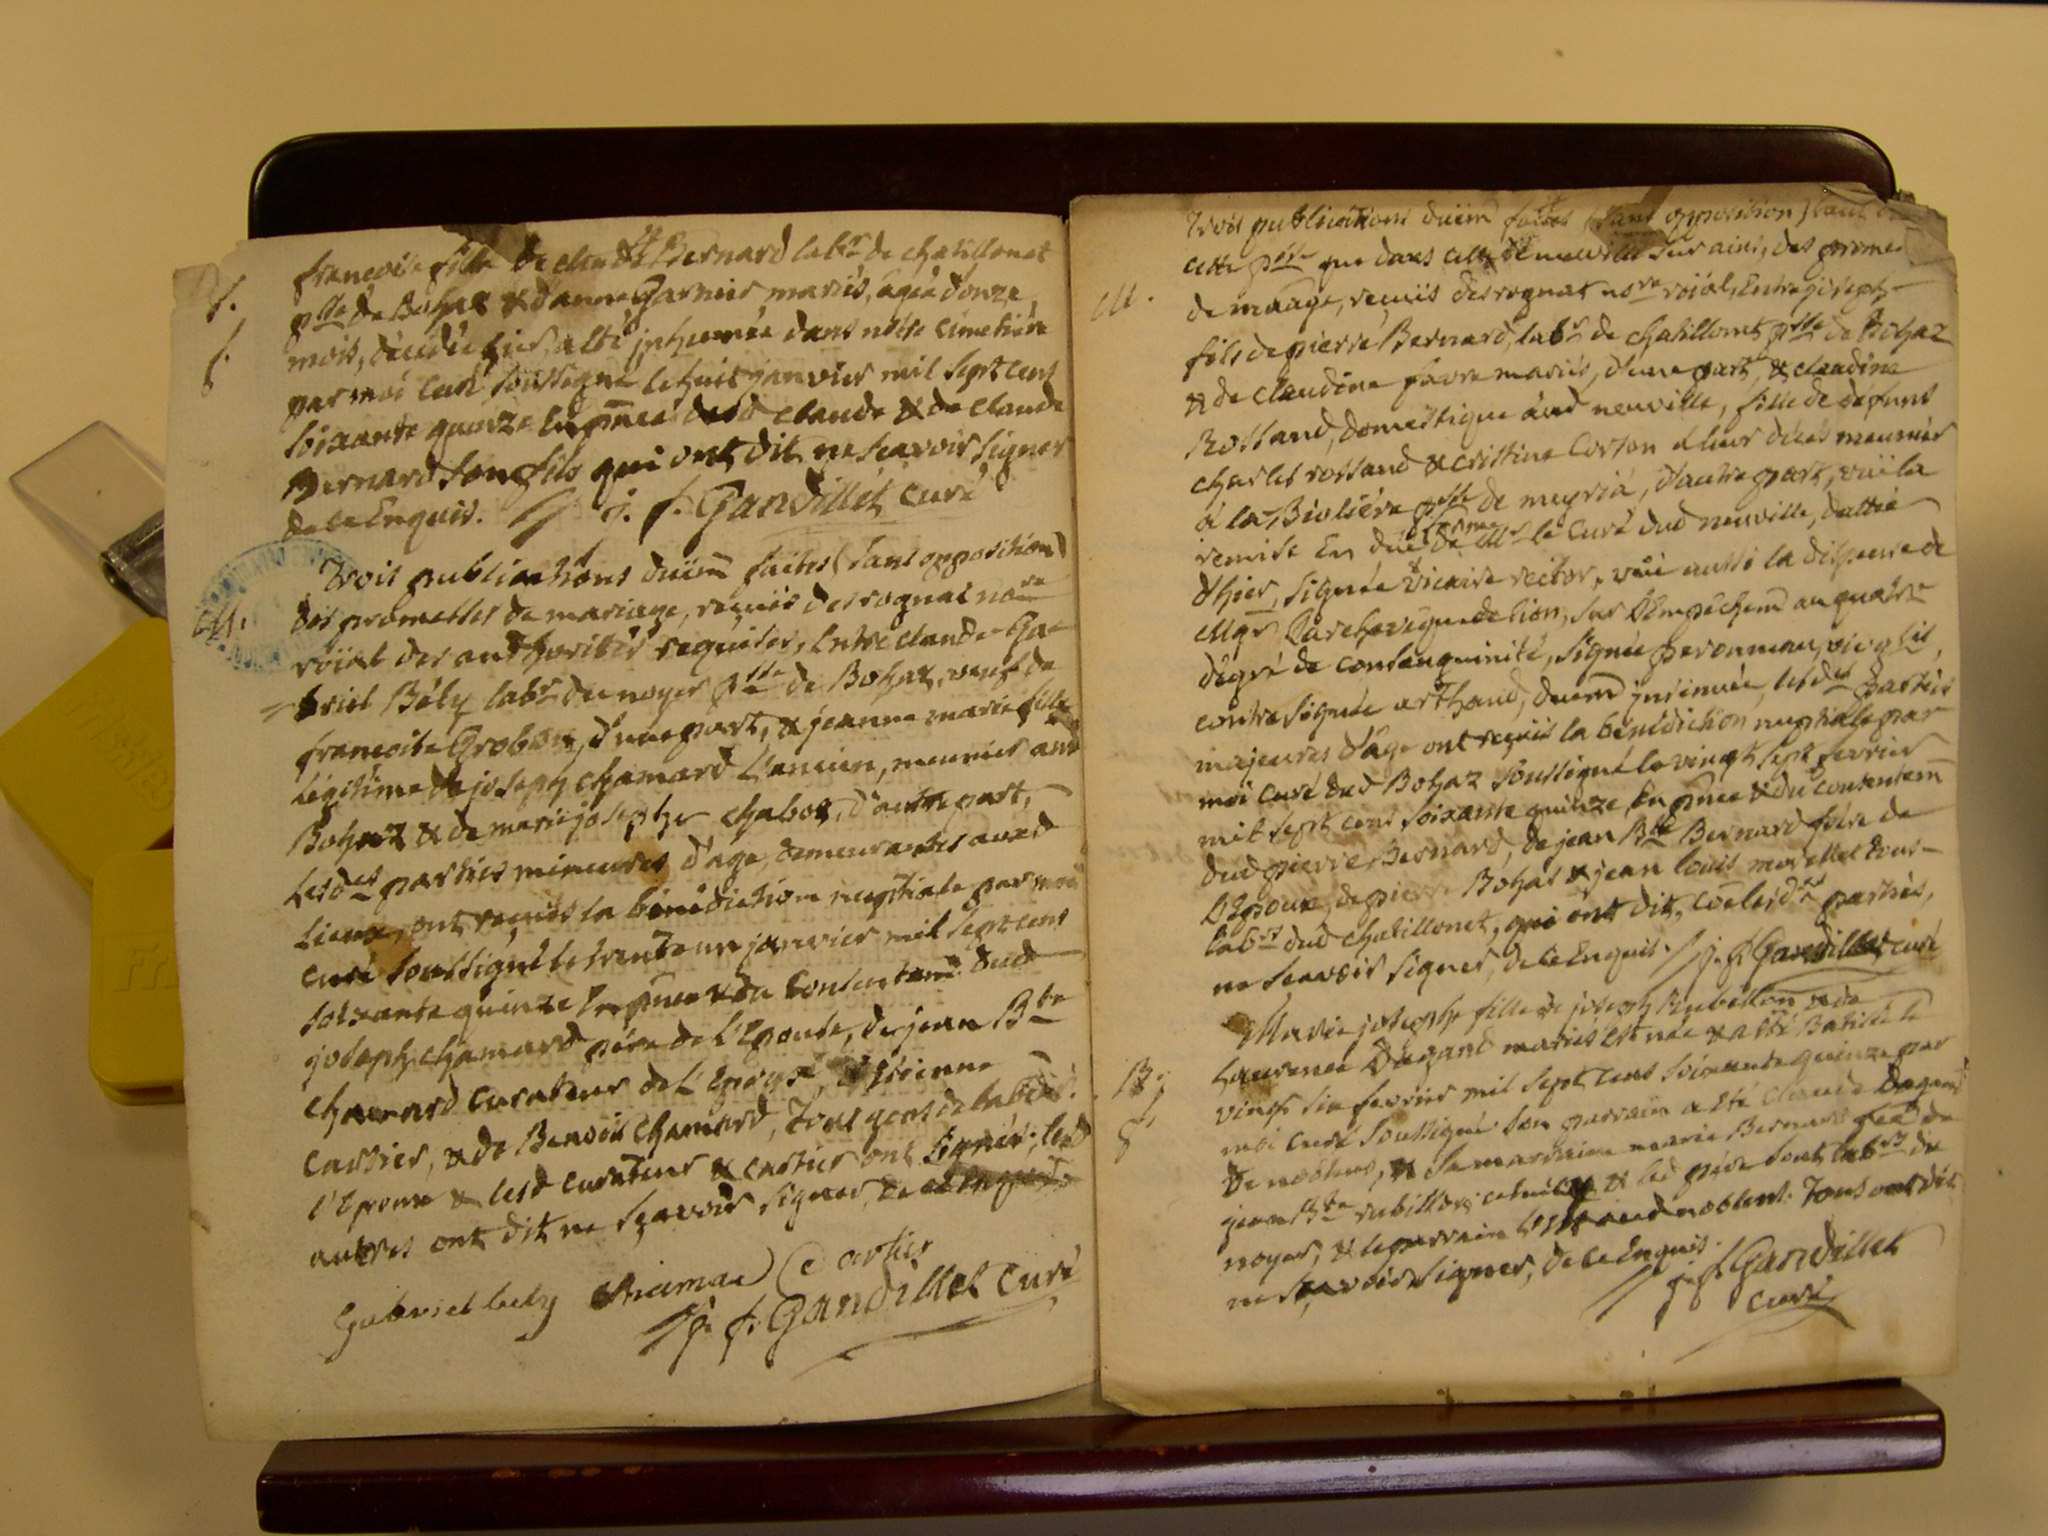 S.
f.
françoise fille de claude Bernard labr de chatillonet
psse de Bohas & d'anne Garnier mariés, agée d'onze
mois, décédée hier, a été inhumée dans nôtre cimetière
par moi curé soussigné le huit janvier mil sept cens
soixante quinze En pnce dud claude & de claude
Bernard son fils qui ont dit ne scavoir signer
de ce Enquis. j. f. Gandillet curé
M.
Trois publications düem faites (sans opposition)
des promesses de mariage, reçuës desrognat nore
roïial des authorités requises, Entre claude Ga-
=briel Bély labr du noyer psse de Bohaz, veuf de
françoise Grobon, d'une part, & jeanne marie fille
légitime de joseph chamard l'ancien, meunier aud
Bohaz & de marie josephe chabot, d'autre part,
Lesdes parties mineures d'age, demeurantes auxd
Lieux, ont reçuës la bénédiction nuptiale par moi
curé soussigné le trente un janvier mil sept cens
soixante quinze En pnce & du consentemt dud
joseph chamard père de l'Epouse, de jean Bte
chamard curateur de l'Epouse, d'étienne
cartier, & de Benoit chamard, tous gens de labr.
l'Epoux & lesd curateur & cartier ont signés; les
autres ont dit ne sçavoir signer, de ce Enquis
Gabriel bely Chamard Cartier
j. f. Gandillet curé
Trois publications düem faites (sans opposition) tant en
cette psse que dans celle de neuville sur ains, des promes
M.
de maage, reçuës desrognat nore roïal, Entre joseph
fils de pierre Bernard, labr de chatillonet psse de Bohaz
& de claudine favre mariés, d'une part, & claudine
Rossand, domestique aud neuville, fille de défunts
charles rossand & cristine Corson a leur décès meunier
à la Biolière psse de meyriá, d'autre part, vuë la
remise En düe forme de Mr le Curé dud neuville, dattée
d'hier, signée vicaire rector, vuë aussi la dispense de
Mgr L'archevêque de lion, sur l'Empêchemt au quatre
dégré de consanguinité, signée peronneau, vic glit,
contresignée arthaud, düemt insinuée, lesdes parties
majeures d'âge ont reçuës la bénédiction nuptiale par
moi curé dud Bohaz soussigné le vingt sept fevrier
mil sept cens soixante quinze, En pnce & du consentemt
dud pierre Bernard, de jean Bte Bernard frère de
l'Epoux, de pierre Bohas & jean louis morellet tous
labrs dud chatillonet, qui ont dit, coe lesdes parties,
ne scavoir signer, de ce Enquis. j. f. Gandillet curé
B.
f.
Marie josephe fille de joseph Rubellon & de
Laurence Dagand mariés est née & a été Batisée le
vingt six fevrier mil sept cens soixante quinze par
moi curé soussigné. son parrain a été claude Dagand
de noblens, & sa marraine marie Bernard fée de
jean Bte rubillon; cetuici & led père sont labrs du
noyer, & le parrain l'est aud noblens. Tous ont dit
ne sçavoir signer, de ce Enquis.
j. f. Gandillet
curé